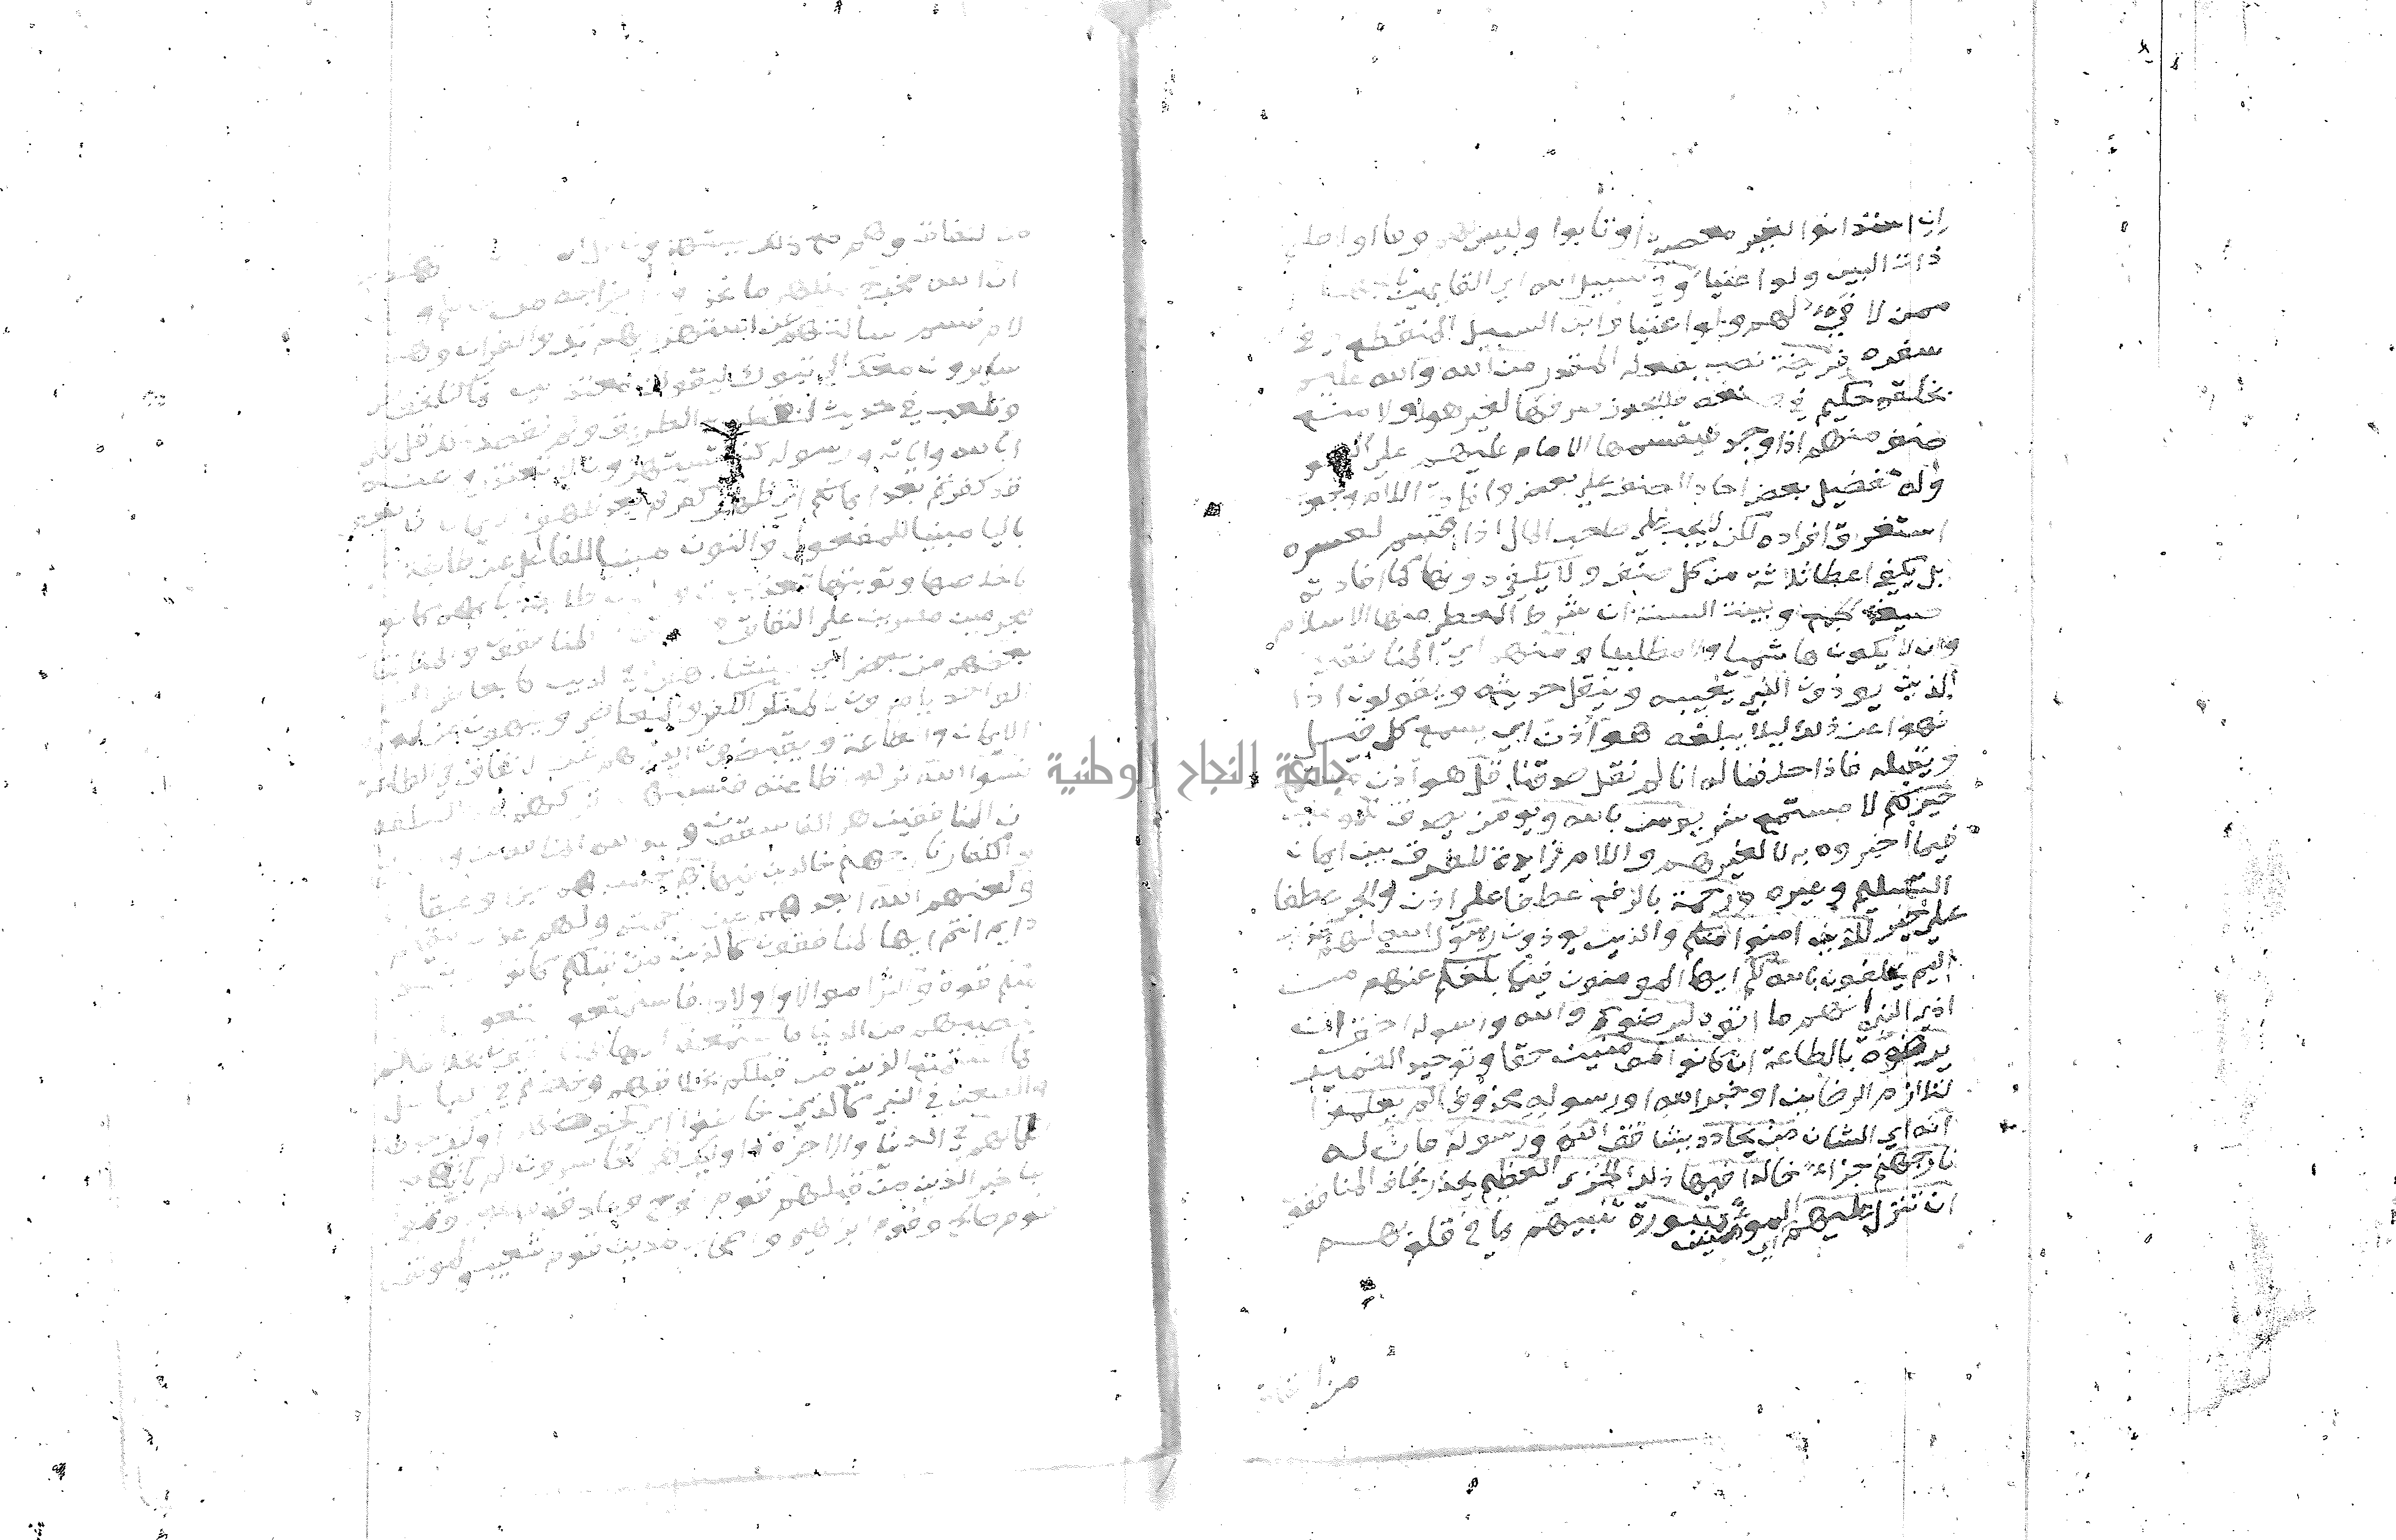 ان استدانوا لغير معصية او تابوا وليس لهم وفا او اصلاح
ذات البين ولوا غنيا وفي سبيل الله اي القايمين بالجهاد
ممن لا فيء لهم ولوا غنيا وابن السبيل المنقطع في
سفره فريضة نصب بفعله المقدر من الله والله عليم
بخلقه حكيم في صنعه فلا يجوز صرفها لغير هولا ولا منع
صنف منهم اذا وجد فيقسمها الامام عليهم على السو
وله تفضيل بعض احاد الصنف على بعض وافادت اللام وجوب
استغراق افراده لكن لا يجب على صاحب المال اذا قسم لعسره
بل يكفي اعطا ثلاثة من كل صنف ولا يكفي دونها كما افادته
صيغة الجمع وبينت السنة ان شرط المعطى منها الاسلام
وان لا يكون هاشميا ولا مطلبيا ومنهم اي المنافقين
الذين يوذون النبي بغيبه وبنقل حديثه ويقولون اذا
نهوا عن ذلك ليلا يبلغه هو اذن اي يسمع كل قيل
ويقبله فاذا حلفنا له انا لم نقل صدقنا قل هو اذن
خير لكم لا مستمع شر يومن بالله ويومن يصدق للمومنين
فيما اخبروه به لا لغيرهم واللام زايدة للفرق بين ايمان
التسليم وغيره ورحمة بالرفع عطفا على اذن والجر عطفا
على خير للذين امنوا منكم والذين يوذون رسول الله لهم عذاب
اليم يحلفون بالله لكم ايها المومنون فيما بلغكم عنهم من
اذي النبي انهم ما اتوه ليرضوكم والله ورسوله احق ان
يرضوه بالطاعة ان كانوا مومنين حقا وتوحيد الضمير
لتلازم الرضاين او خبر الله او رسوله محذوف الم يعلموا
انه اي الشان من يحادد يشاقق الله ورسوله فان له
نار جهنم جزاء خالدا فيها ذلك الخزي العظيم يحذر يخاف المنافقون
ان تنزل عليهم اي المومنين سورة تنبيهم بما في قلوبهم
من النفاق وهم مع ذلك يستهزون
ان الله مخرج مظهر ما تحذرون اخراجه من نفاقكم
لام قسم سالتهم عن استهزايهم بك والقران وهم
سايرون معك الي تبوك ليقولن معتذرين انما كنا نخوض
ونلعب في حديث لنقطع به الطريق ولم نقصد ذلك قل لهم
ابالله واياته ورسوله كنتم تستهزون لا تعتذروا عنه
قد كفرتم بعد ايمانكم اي ظهر كفركم بعد اظهار الايمان ان نعف
باليا مبنيا للمفعول والنون مبنيا للفاعل عن طايفة
باخلاصها وتوبتها نعذب طايفة بانهم كانوا
مجرمين مصرين على النفاق المنافقون والمنافقات
بعضهم من بعض اي
الواحد يامرون بالمنكر الكفر والمعاصي وينهون عن المعروف
الايمان والطاعة ويقبضون ايديهم عن الانفاق في الطاعة
نسوا الله تركوا طاعته فنسيهم تركهم من لطفه
ان المنافقين هم الفاسقون وعد الله المنافقين والمنافقات
والكفار نار جهنم خالدين فيها هي حسبهم جزا وعقابا
ولعنهم الله ابعدهم عن رحمته ولهم عذاب مقيم
دايم انتم ايها المنافقون كالذين من قبلكم كانوا اشد
منكم قوة واكثر اموالا واولادا فاستمتعوا تمتعوا
نصيبهم من الدنيا فاستمتعتم ايها المنافقون بخلاقكم
كما استمتع الذين من قبلكم بخلاقهم وخضتم في الباطل
والطعن في النبي كالذي خاضوا اي كخوضهم اوليك حبطت
اعمالهم في الدنيا والاخرة واوليك هم الخاسرون الم ياتهم
نبا خبر الذين من قبلهم قوم نوح وعاد قوم هود وثمود
قوم صالح وقوم ابراهيم واصحاب مدين قوم شعيب والموتفكات
جامعة النجاح الوطنية